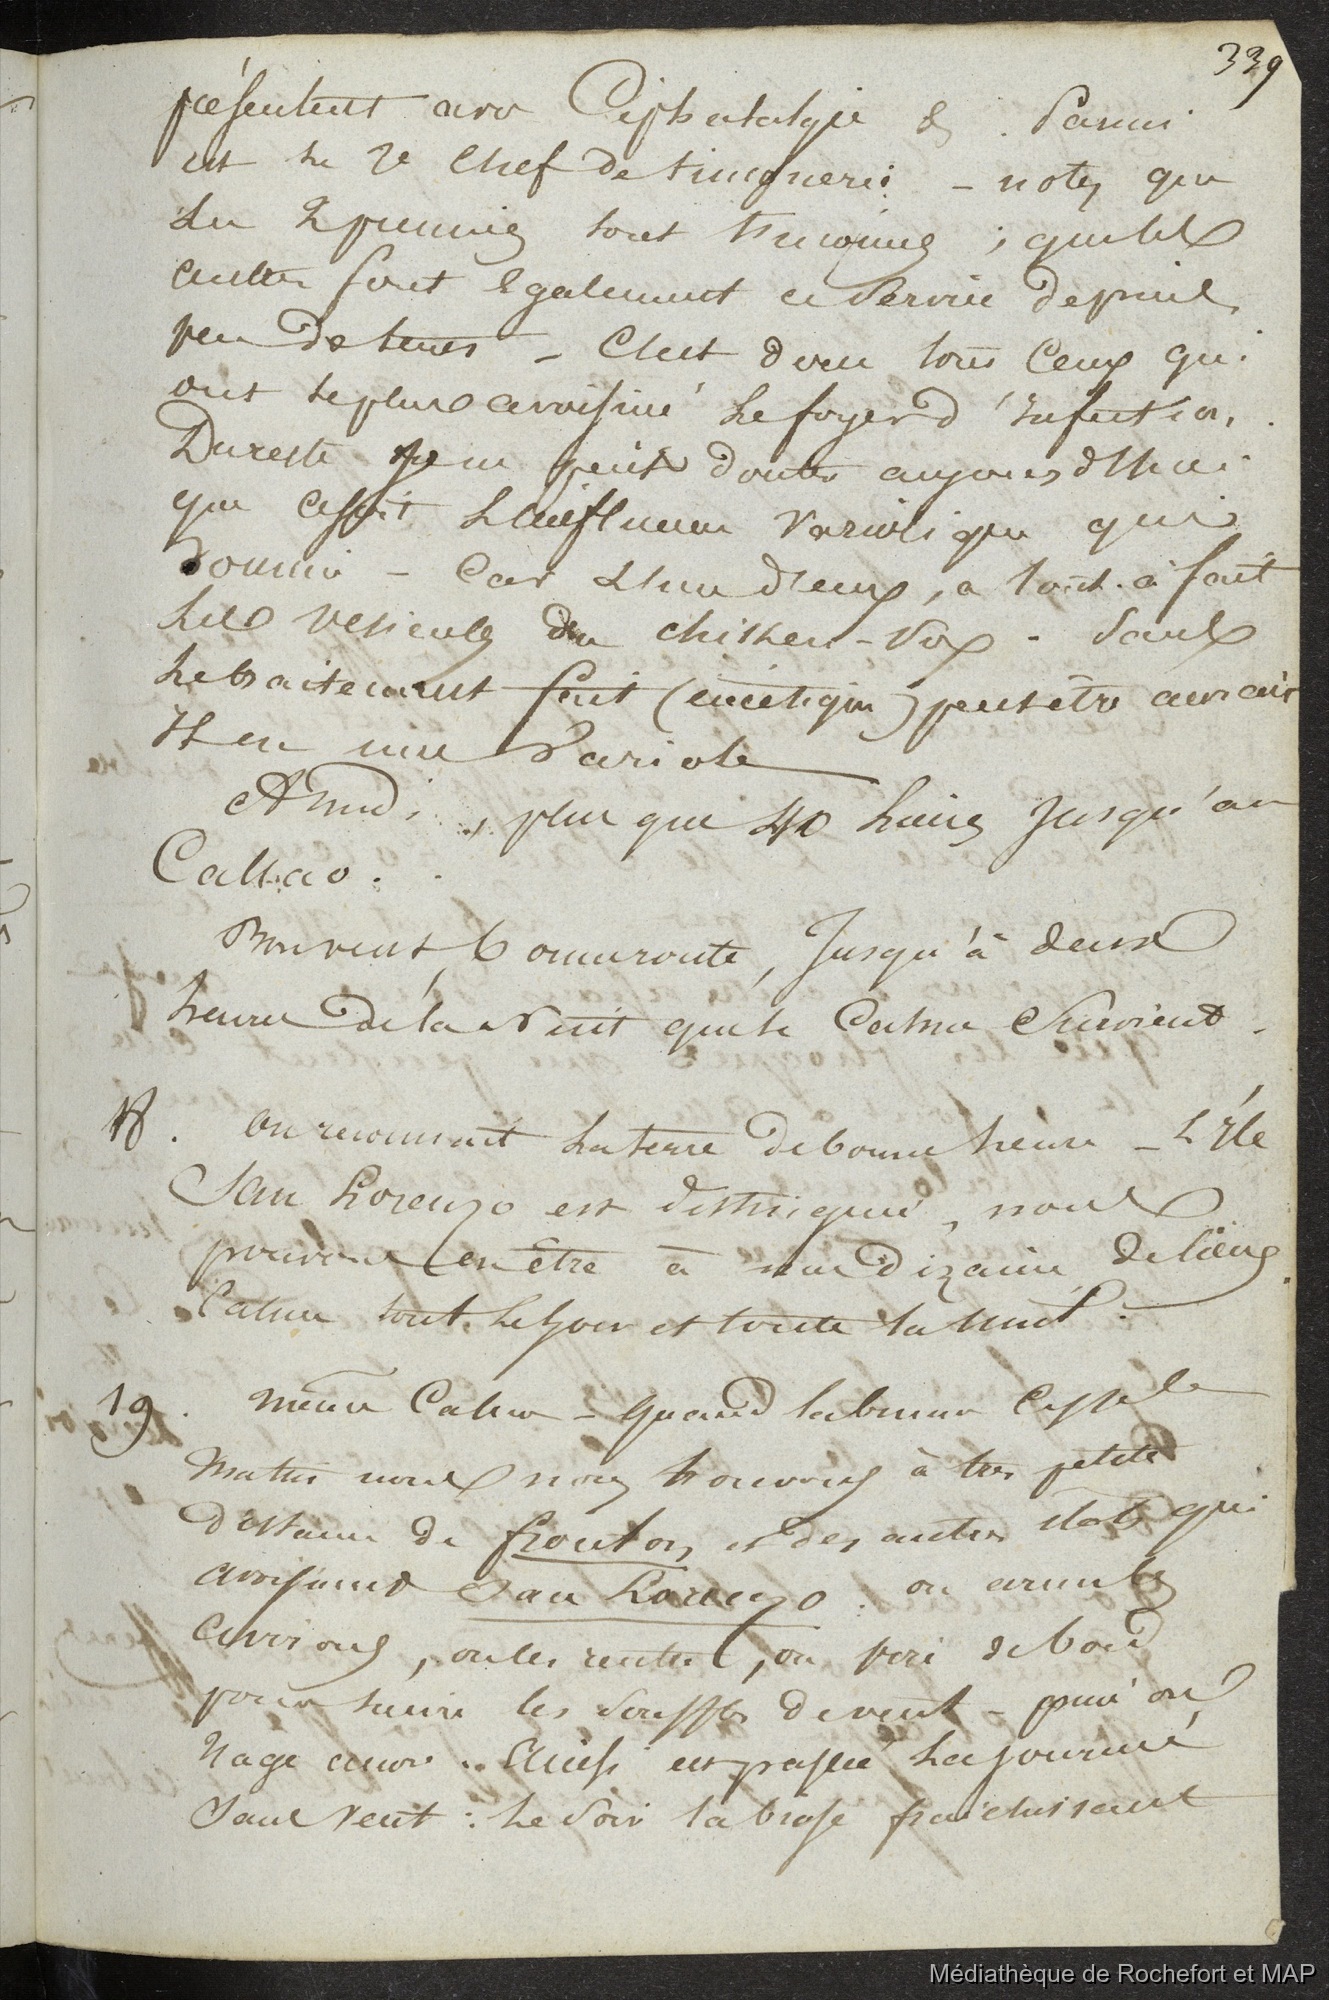 339
présentent avec Céphalalgie &. Parmi
est le 2e Chef de timonerie - notez que
les 2 premiers sont timoniers ; que les
autres font également ce service depuis
peu de temps - C'est donc tous ceux qui
ont le plus avoisiné le foyer d'infection.
Du reste je ne puis douter aujourd'hui
que ce soit l'influence variolique qui
domine - Car l'un d'eux, a tout à fait
les vésicules du chicken-pox - Sans
le traitement fait (émétique) peut être aurait
Il eu une Variole
A midi, plus que 40 lieues jusqu'au
Callao.
Bon vent, bonne route, Jusqu'à deux
heures de la nuit que le Calme survient.
18. on reconnait la terre de bonne heure - L'île
San Lorenzo est distinguée, nous
pouvons en être à une dizaine de lieues.
Calme tout le jour et toute la nuit.
19. Même Calme - quand la brume cesse le
matin nous nous trouvons à très petite
distance de fronton et des autres ilots qui
avoisinent San Lorenzo. on arme les
avirons, on les rentre, on vire de bord
pour suivre les souffles de vent - puis on
Nage encore .. Ainsi est passée la journée
Sans vent : le soir la brise fraichissant
Médiathèque de Rochefort et MAP